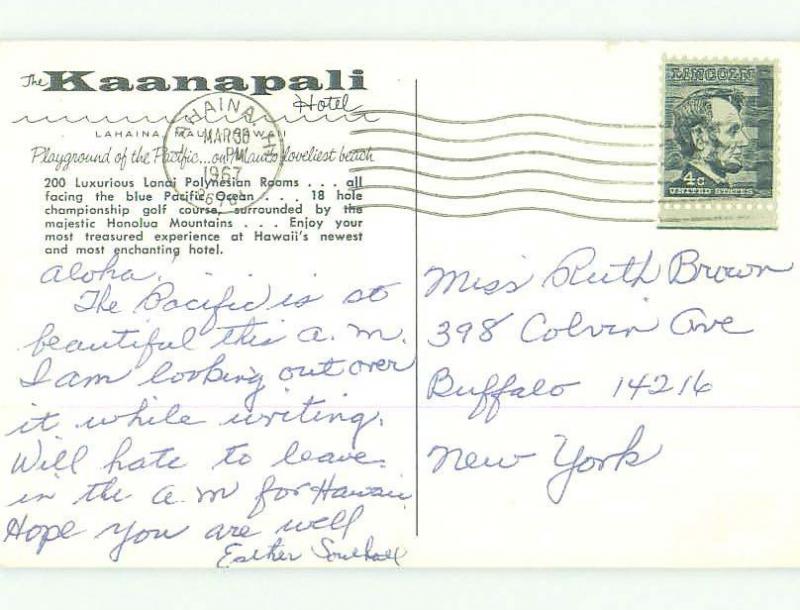 The Kaanapali
Hotel
LAHAINA, MAUI, HAWAII
Playground of the Pacific...on Maui's loveliest beach
200 Luxurious Lanai Polynesian Rooms . . . all
facing the blue Pacific Ocean . . . 18 hole
championship golf course, surrounded by the
majestic Honolua Mountains . . . Enjoy your
most treasured experience at Hawaii's newest
and most enchanting hotel.
LAHAINA, HI
MAR 30
PM
1967
LINCOLN
4c
UNITED STATES
aloha,
The Pacific is so
beautiful this a.m.
I am looking out over
it while writing.
Will hate to leave
in the a.m for Hawaii,
Hope you are well
Esther Southall
Miss Ruth Brown
398 Colvin Ave
Buffalo 14216
New York